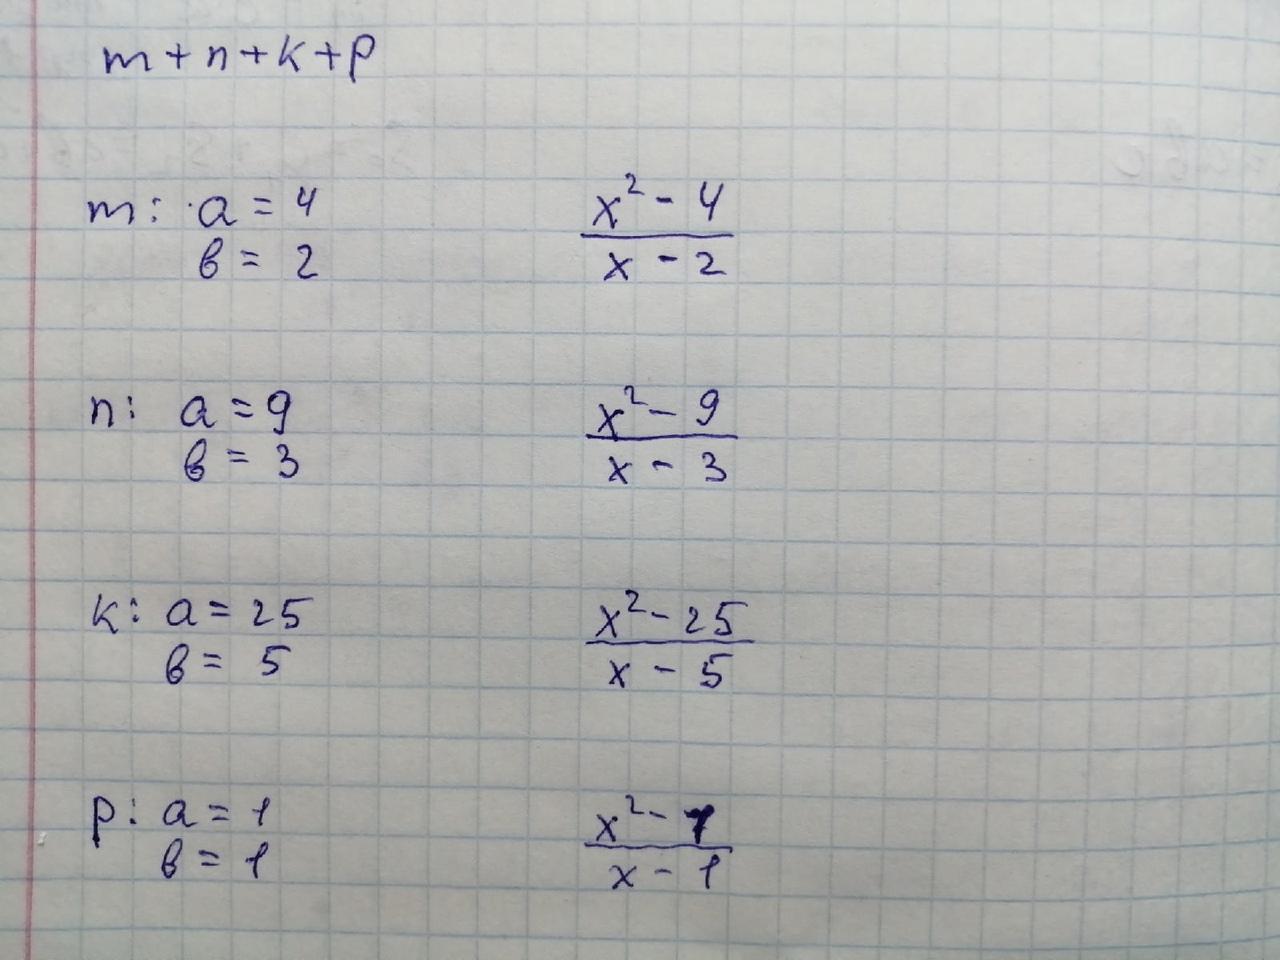 m+n+k+p
m: a = 4
в = 2
x² - 4
x - 2
n: a = 9
в = 3
x² - 9
x - 3
k: a = 25
в = 5
x² - 25
x - 5
p: a = 1
в = 1
x² - 1
x - 1